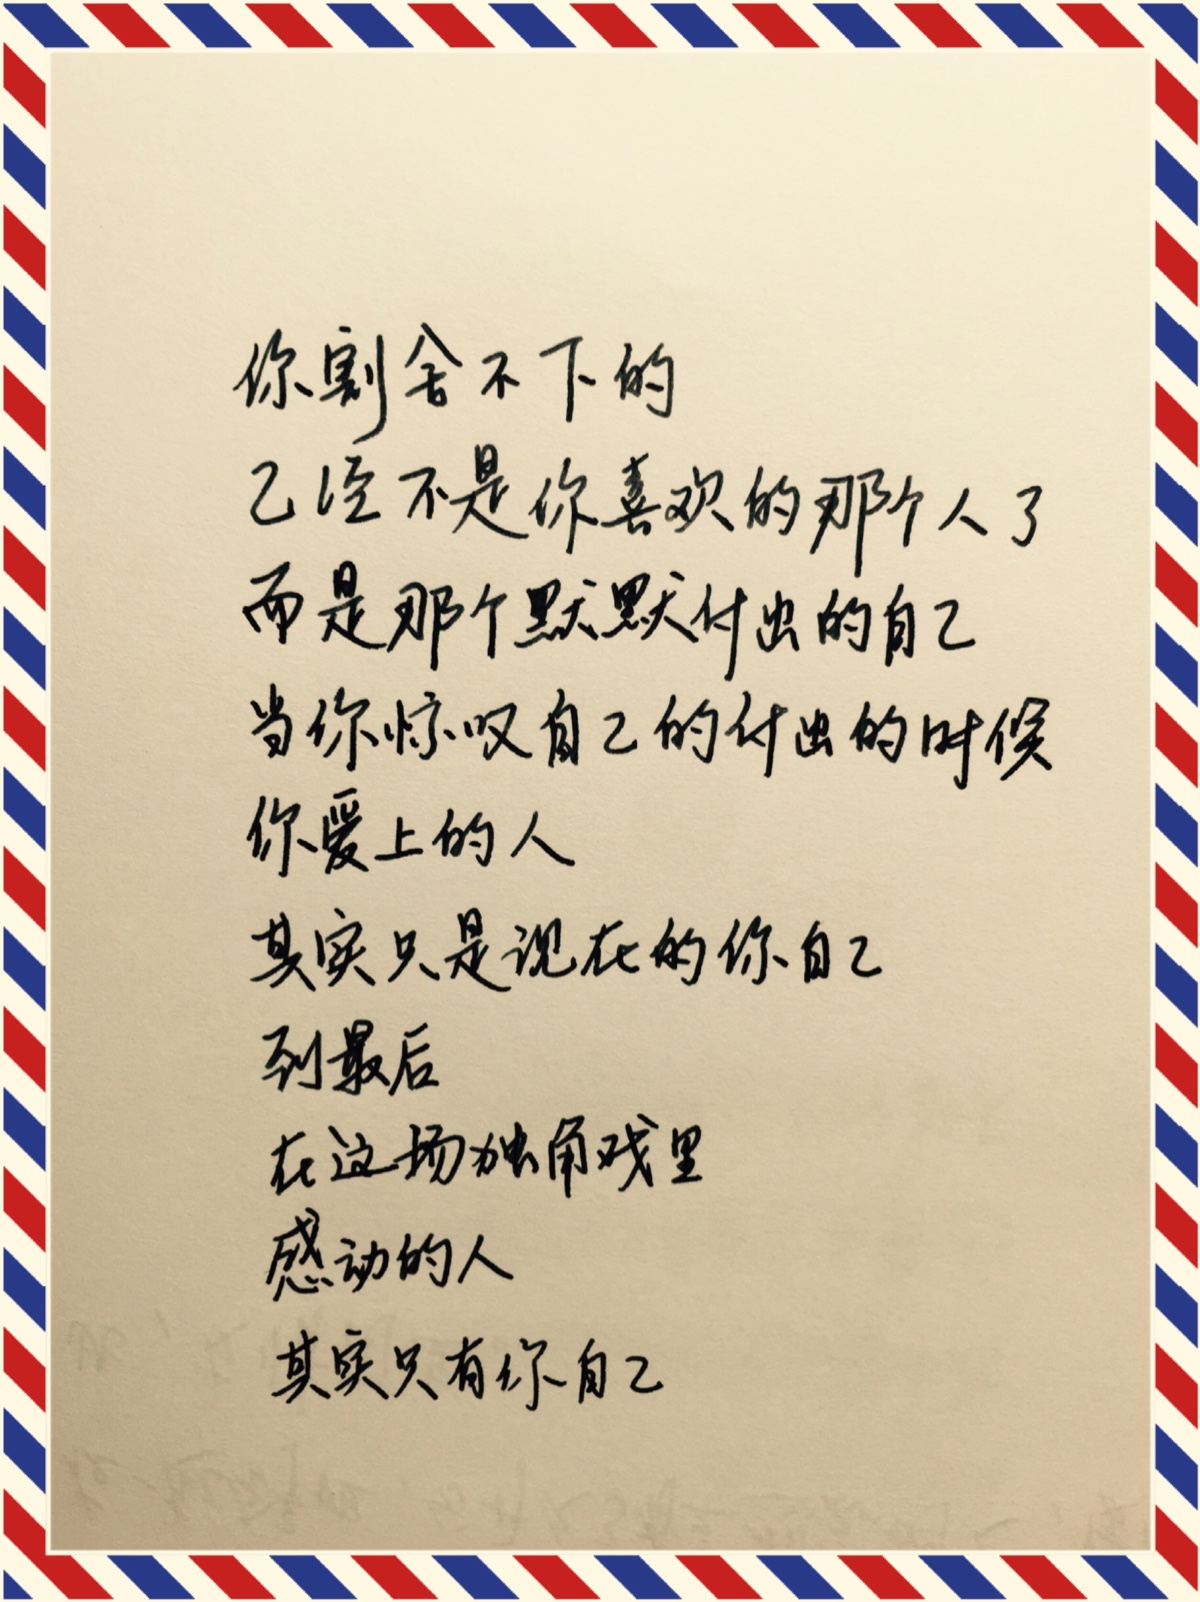 你割舍不下的
已经不是你喜欢的那个人了
而是那个默默付出的自己
当你惊叹自己的付出的时候
你爱上的人
其实只是现在的你自己
到最后
在这场独角戏里
感动的人
其实只有你自己